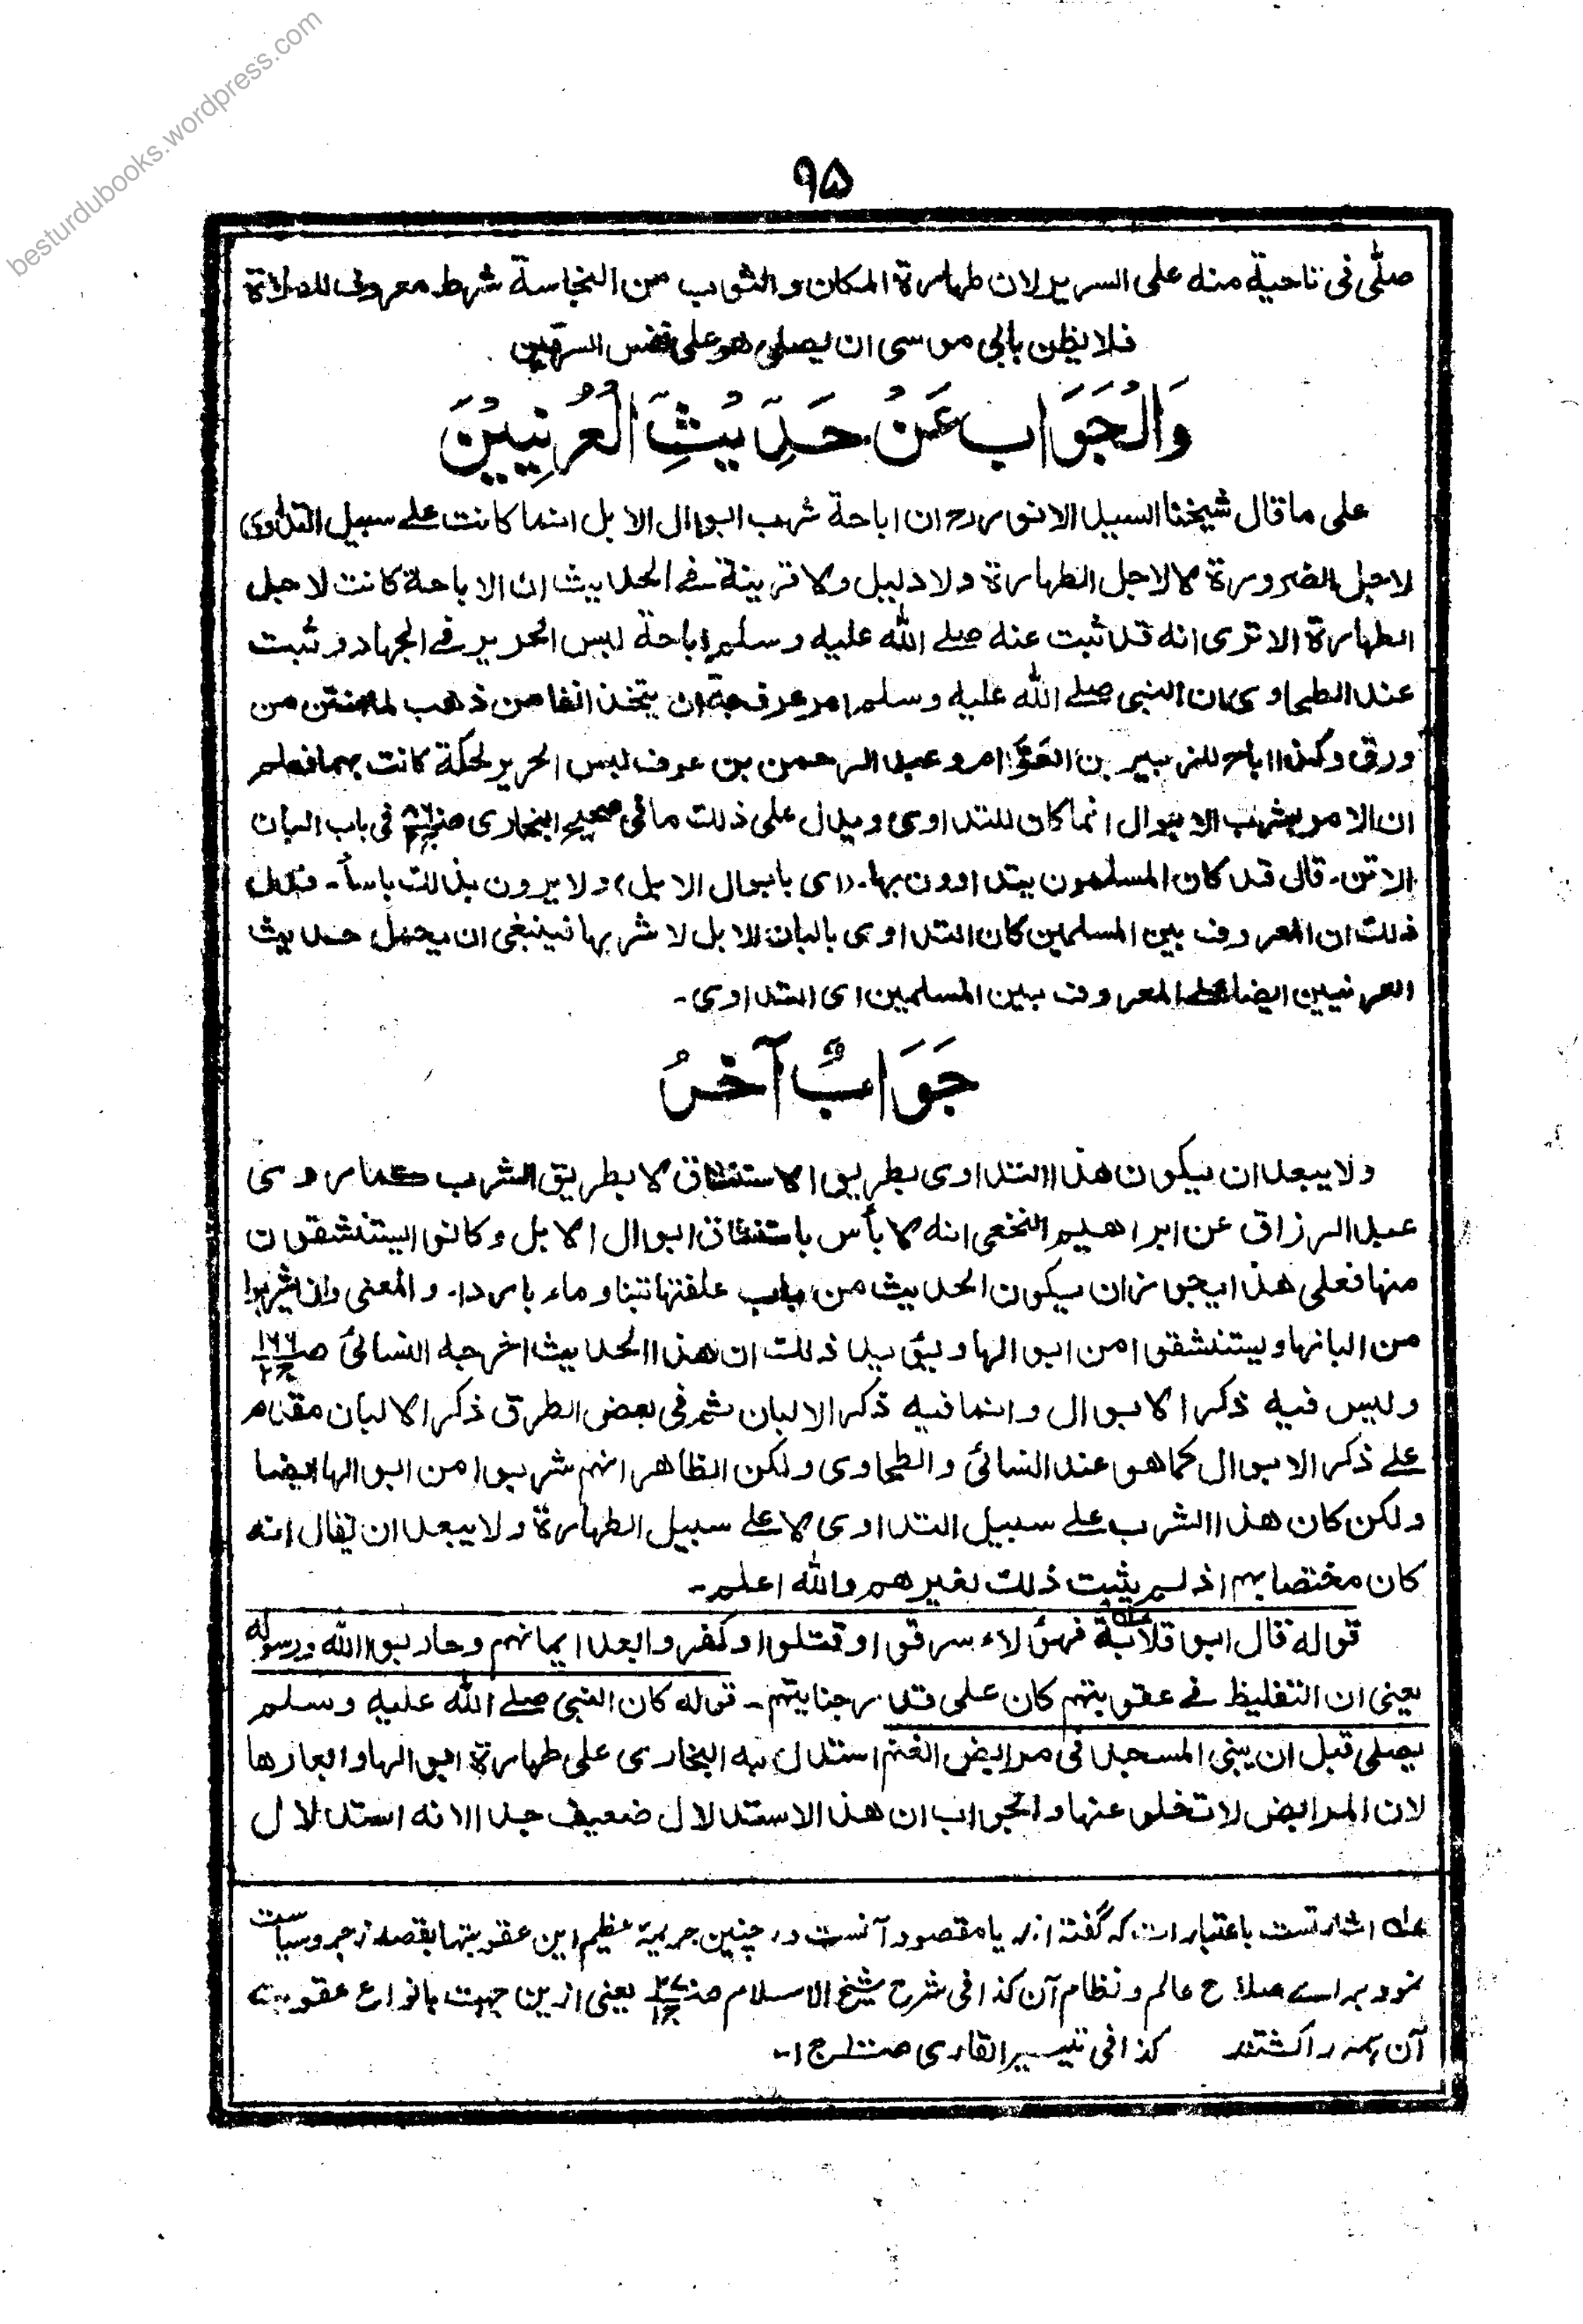 besturdubooks.wordpress.com
۹۵
صلّٰی فی ناحیة منه علی السریر لان طهارة المکان والثوب من النجاسة شرط معروف للصلاة
فلا یظن بابی موسی ان یصلی هو علی نفس السرقین
وَالْجَوَابُ عَنْ حَدِيْثِ الْعُرَنِيِّيْنَ
علی ما قال شیخنا السید الانور رح ان اباحة شرب ابوال الابل انما کانت علے سبیل التداوی
لاجل الضرورة لا لاجل الطهارة ولا دلیل ولا قرینة فے الحدیث ان الاباحة کانت لاجل
الطهارة الا تری انه قد ثبت عنه صلے الله علیه وسلم اباحة لبس الحریر فے الجهاد وثبت
عند الطحاوی ان النبی صلے الله علیه وسلم امر عرفجة ان یتخذ انفا من ذهب لما نتن من
ورق وکذا اباح للزبیر بن العوّام وعبد الرحمن بن عوف لبس الحریر لحکة کانت بهما فعلم
ان الامر بشرب الابوال انما کان للتداوی ویدل علی ذلک ما فی صحیح البخاری فی باب البان
الاتن۔ قال قد کان المسلمون یتداوون بها۔ (ای بابوال الابل) ولا یرون بذالک باسا۔ فدل
ذلک ان المعروف بین المسلمین کان التداوی بالبان الابل لا شربها فینبغی ان یحمل حدیث
العرنیین ایضا علے المعروف بین المسلمین ای التداوی۔
جَوَابٌ آخَرُ
ولا یبعد ان یکون هذا التداوی بطریق الاستنشاق لا بطریق الشرب کما روی
عبد الرزاق عن ابراهیم النخعی انه لا بأس باستنشاق ابوال الابل وکانوا یستنشقون
منها فعلی هذا یجوز ان یکون الحدیث من باب علفتها تبنا وماء باردا۔ والمعنی وان یشربوا
من البانها ویستنشقوا من ابوالها ویؤید ذلک ان هذا الحدیث اخرجه النسائی صـ ۱۶۶ ج۲
ولیس فیه ذکر الابوال وانما فیه ذکر الالبان ثم فی بعض الطرق ذکر الالبان مقدم
علے ذکر الابوال کما هو عند النسائی والطحاوی ولکن الظاهر انهم شربوا من ابوالها ایضا
ولکن کان هذا الشرب علے سبیل التداوی لا علے سبیل الطهارة ولا یبعد ان یقال انه
کان مختصا بهم اذ لم یثبت ذلک لغیرهم والله اعلم۔
قوله قال ابو قلابة عـه فهؤلاء سرقوا وقتلوا وکفروا بعد ایمانهم وحاربوا الله ورسوله
یعنی ان التغلیظ فے عقوبتهم کان علی قدر جنایتهم۔ قوله کان النبی صلے الله علیه وسلم
یصلی قبل ان یبنی المسجد فی مرابض الغنم استدل به البخاری علی طهارة ابوالها وابعارها
لان المرابض لا تخلو عنها والجواب ان هذا الاستدلال ضعیف جدا لانه استدلال
عـه اشارتست باعتبارات که گفته اند یا مقصود آنست در چنین جریمة عظیم این عقوبتها بقصد زجر وسیاست
نمود براے صلاح عالم ونظام آن کذا فی شرح شیخ الاسلام یعنی ازین جهت بانواع عقوبت
آن همه را کشتند کذا فی تیسیر القاری ج ۱۔